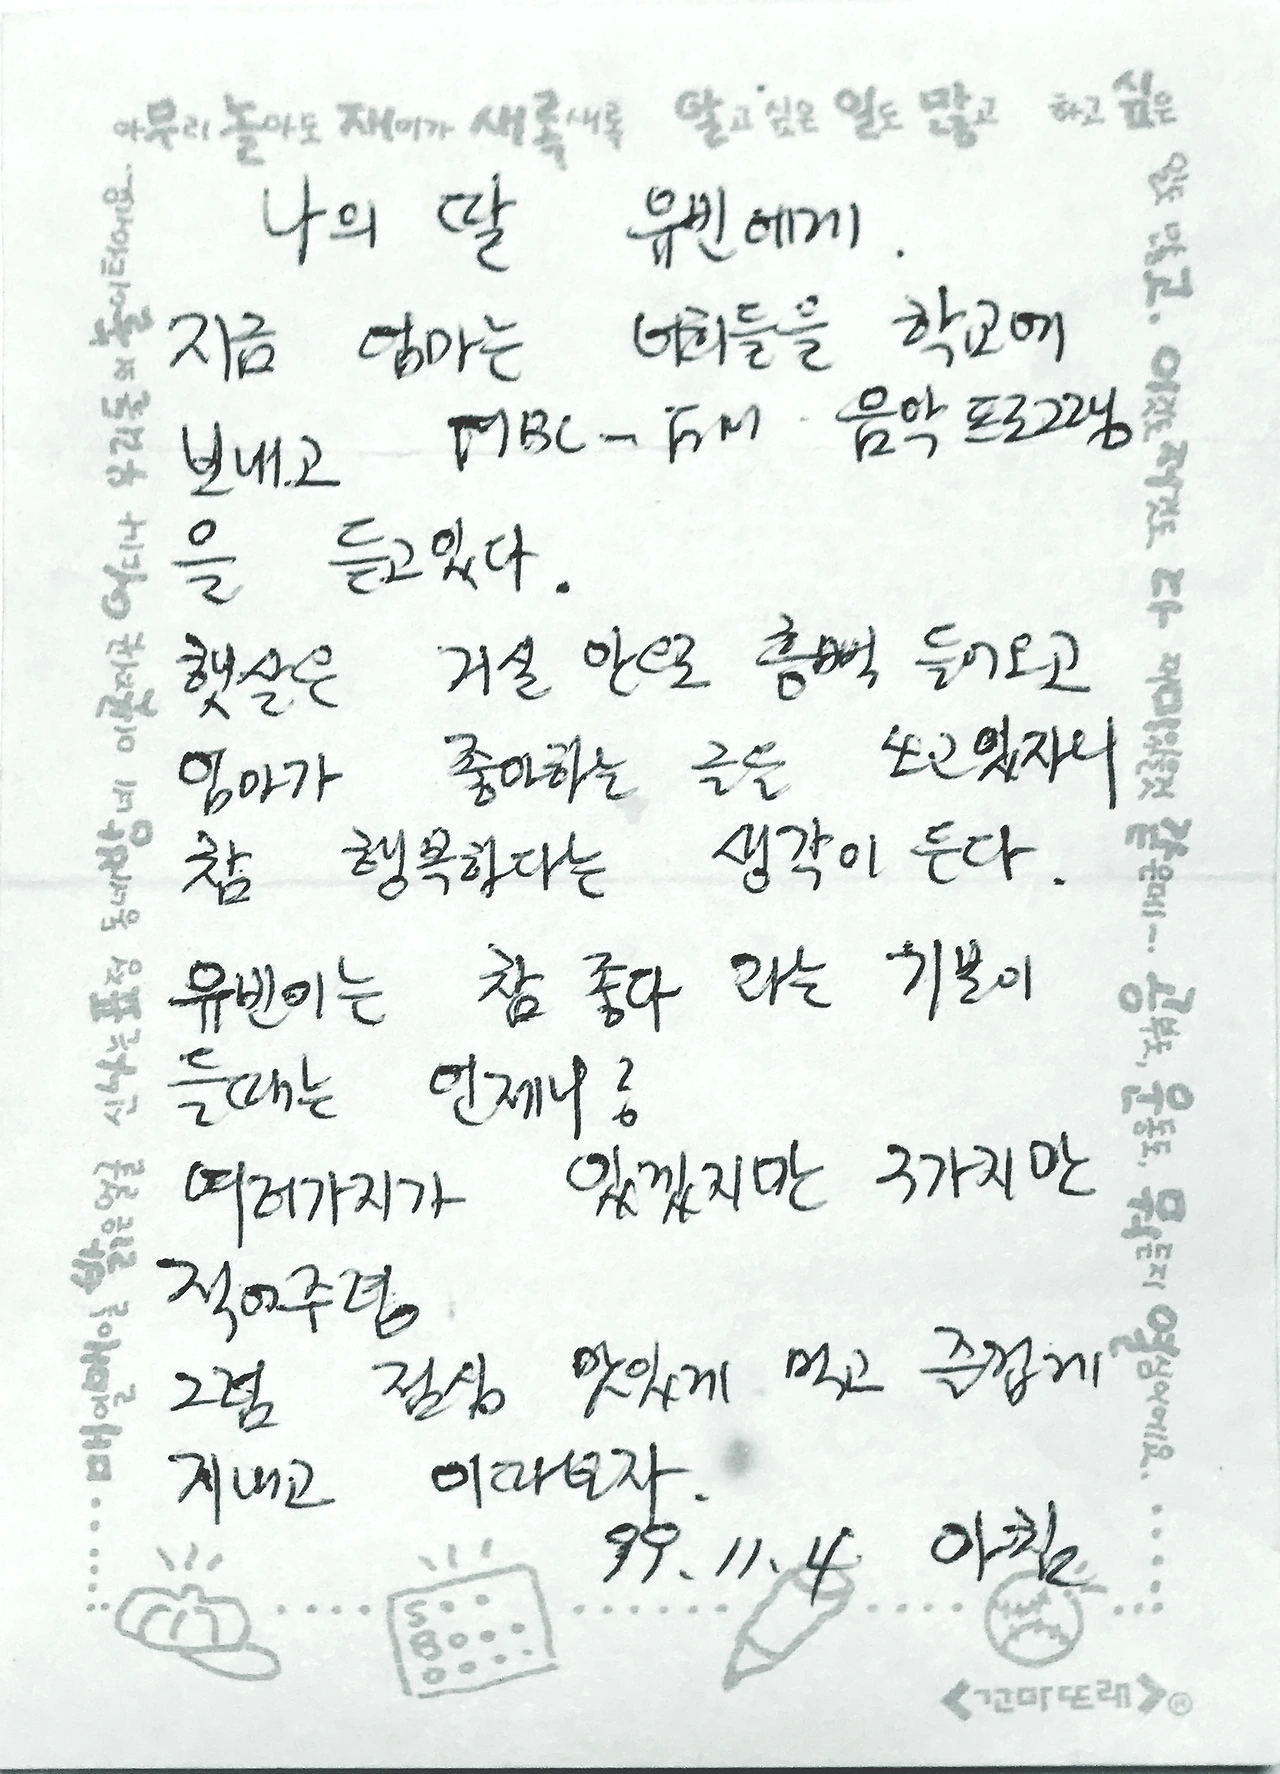 아무리 놀아도 재미가 새록새록 알고싶은 일도 많고 하고싶은
일도 많고. 이것도 저것도 다 재미있을것 같은데~. 공부도, 운동도, 뭐든지 열심이에요.
나의 딸 유빈에게.
지금 엄마는 너희들을 학교에
보내고 MBC-FM 음악프로그램
을 듣고있다.
햇살은 거실 안으로 흠뻑 들어오고
엄마가 좋아하는 글을 쓰고있자니
참 행복하다는 생각이 든다.
유빈이는 참 좋다 라는 기분이
들때는 언제니?
여러가지가 있겠지만 3가지만
적어주렴
그럼 점심 맛있게 먹고 즐겁게
지내고 이따보자.
99.11.4 아침
매일매일 밝은 얼굴 신나는 표정 동네방네 이곳저곳 어디나 우리들의 놀이터에요..
S
B
O
<꼬마또래>®